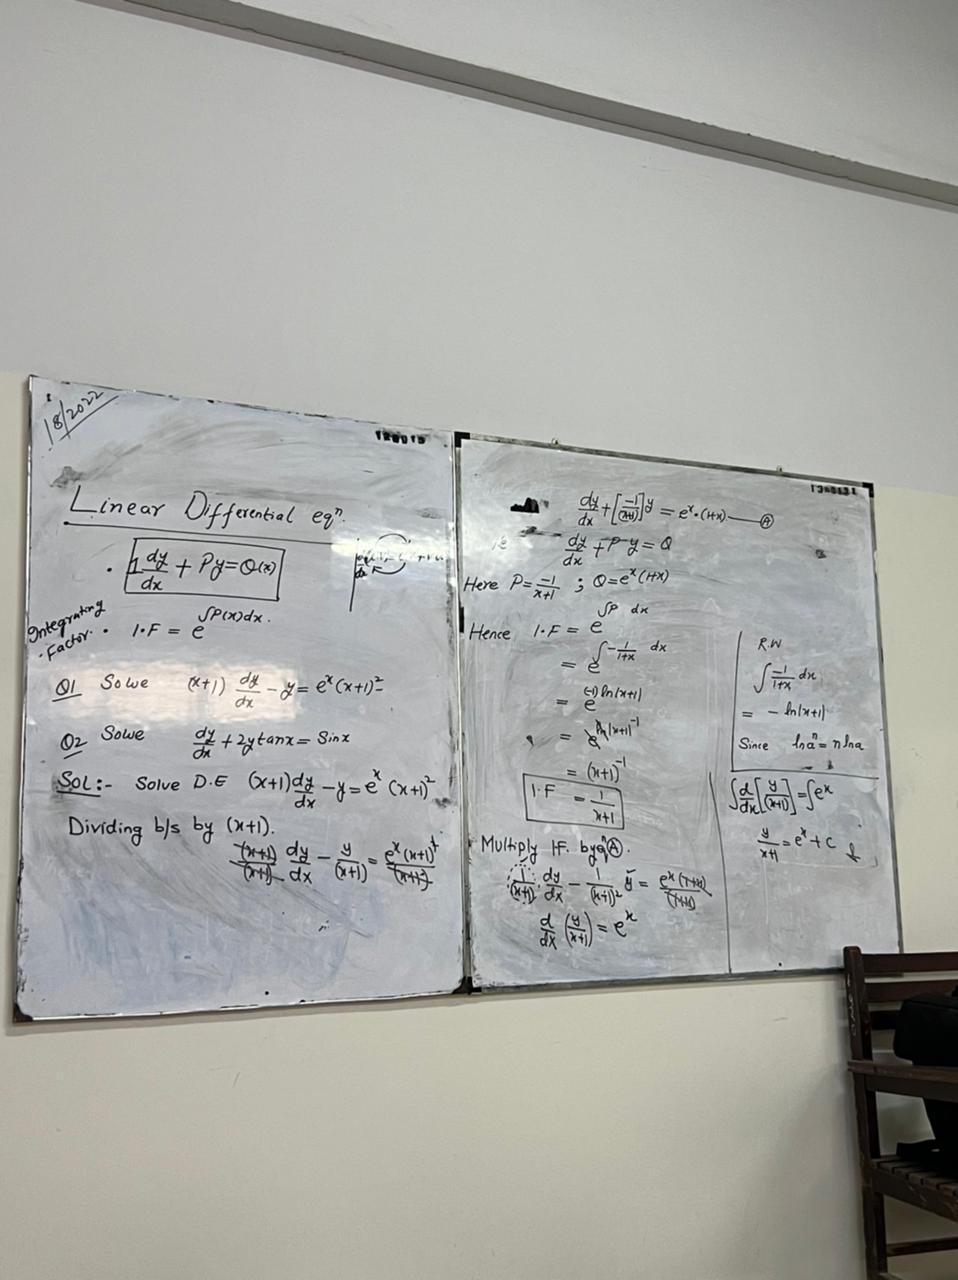 18/2022
Linear Differential eqⁿ.
• 1 dy/dx + Py = Q(x)
Integrating Factor. • I.F = e^∫P(x)dx.
Q1 Solve (x+1) dy/dx - y = eˣ(x+1)²
Q2 Solve dy/dx + 2y tanx = Sinx
SOL:- Solve D.E (x+1) dy/dx - y = eˣ (x+1)²
Dividing b/s by (x+1).
(x+1)/(x+1) dy/dx - y/(x+1) = eˣ(x+1)²/(x+1)
dy/dx + [-1/(x+1)] y = eˣ.(1+x) — Ⓐ
dy/dx + P y = Q
Here P = -1/x+1 ; Q = eˣ(1+x)
Hence I.F = e^∫P dx
= e^∫-1/1+x dx
= e^(-1) ln|x+1|
= e^ln|x+1|⁻¹
= (x+1)⁻¹
I.F = 1/x+1
Multiply I.F. by eqⁿ Ⓐ.
1/(x+1) . dy/dx - 1/(x+1)² y = eˣ(1+x)/(1+x)
d/dx (y/x+1) = eˣ
R.W
∫ -1/1+x dx
= - ln|x+1|
Since ln aⁿ = n ln a
∫ d/dx [y/(x+1)] = ∫eˣ
y/x+1 = eˣ + c